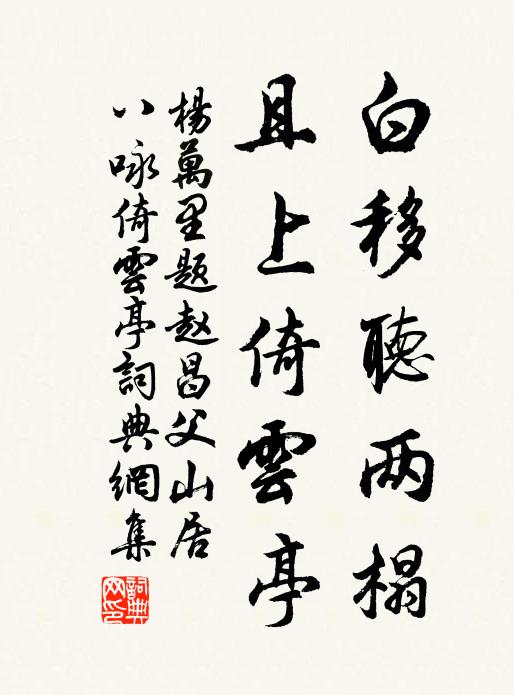 白移聽两榻
且上倚雲亭
楊萬里题赵昌父山居
八咏倚雲亭詞典網集
詞典
网印